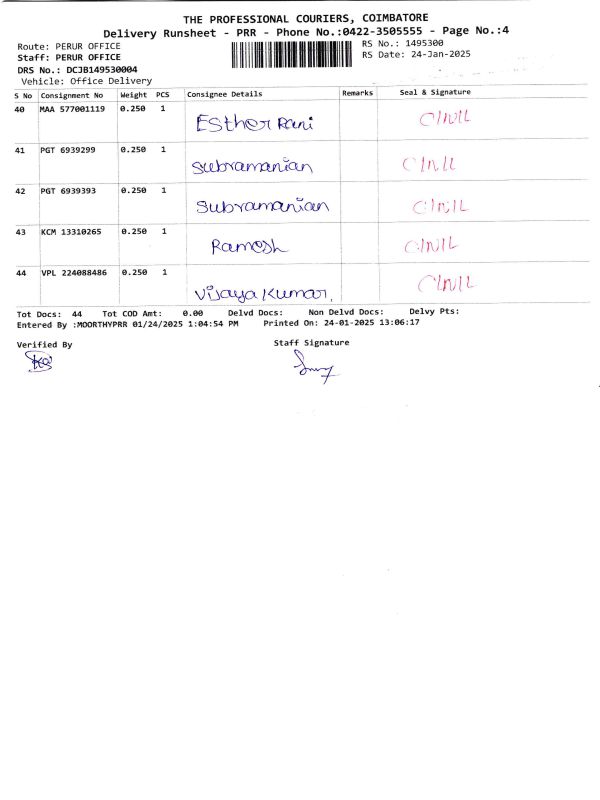 THE PROFESSIONAL COURIERS, COIMBATORE
Delivery Runsheet - PRR - Phone No.:0422-3505555 - Page No.:4
Route: PERUR OFFICE
RS No.: 1495300
Staff: PERUR OFFICE
RS Date: 24-Jan-2025
DRS No.: DCJB149530004
Vehicle: Office Delivery
S No Consignment No Weight PCS Consignee Details Remarks Seal & Signature
40 MAA 577001119 0.250 1 Esther Rani
41 PGT 6939299 0.250 1 Subramanian
42 PGT 6939393 0.250 1 Subramanian
43 KCM 13310265 0.250 1 Ramesh
44 VPL 224088486 0.250 1 Vijaya Kumar.
Tot Docs: 44 Tot COD Amt: 0.00 Delvd Docs: Non Delvd Docs: Delvy Pts:
Entered By :MOORTHYPRR 01/24/2025 1:04:54 PM Printed On: 24-01-2025 13:06:17
Verified By
Staff Signature